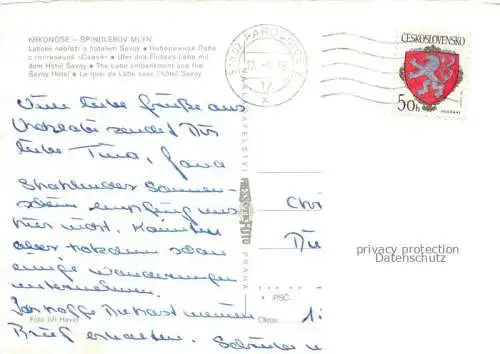 KRKONOŠE – ŠPINDLERŮV MLÝN
Labské nábřeží s hotelem Savoy • Набережная Лабы
с гостиницей «Савой» • Ufer des Flusses Labe mit
dem Hotel Savoy • The Labe embankment and the
Savoy Hotel • Le quai de Labe avec l'hôtel Savoy
ČESKOSLOVENSKO
50h
Viele liebe Grüße aus
sendet Dir
liebe Tina, Jana
Strahlender Sonnen-
schein empfing uns
hier nicht. Konnten
aber trotzdem schon
einige Wanderungen
unternehmen.
Ich hoffe Du hast meinen
Brief erhalten.
NAKLADATELSTVÍ
PRESSFOTO
PRAHA
Foto Jiří Havel
Chri
PSČ
Okres
privacy protection
Datenschutz